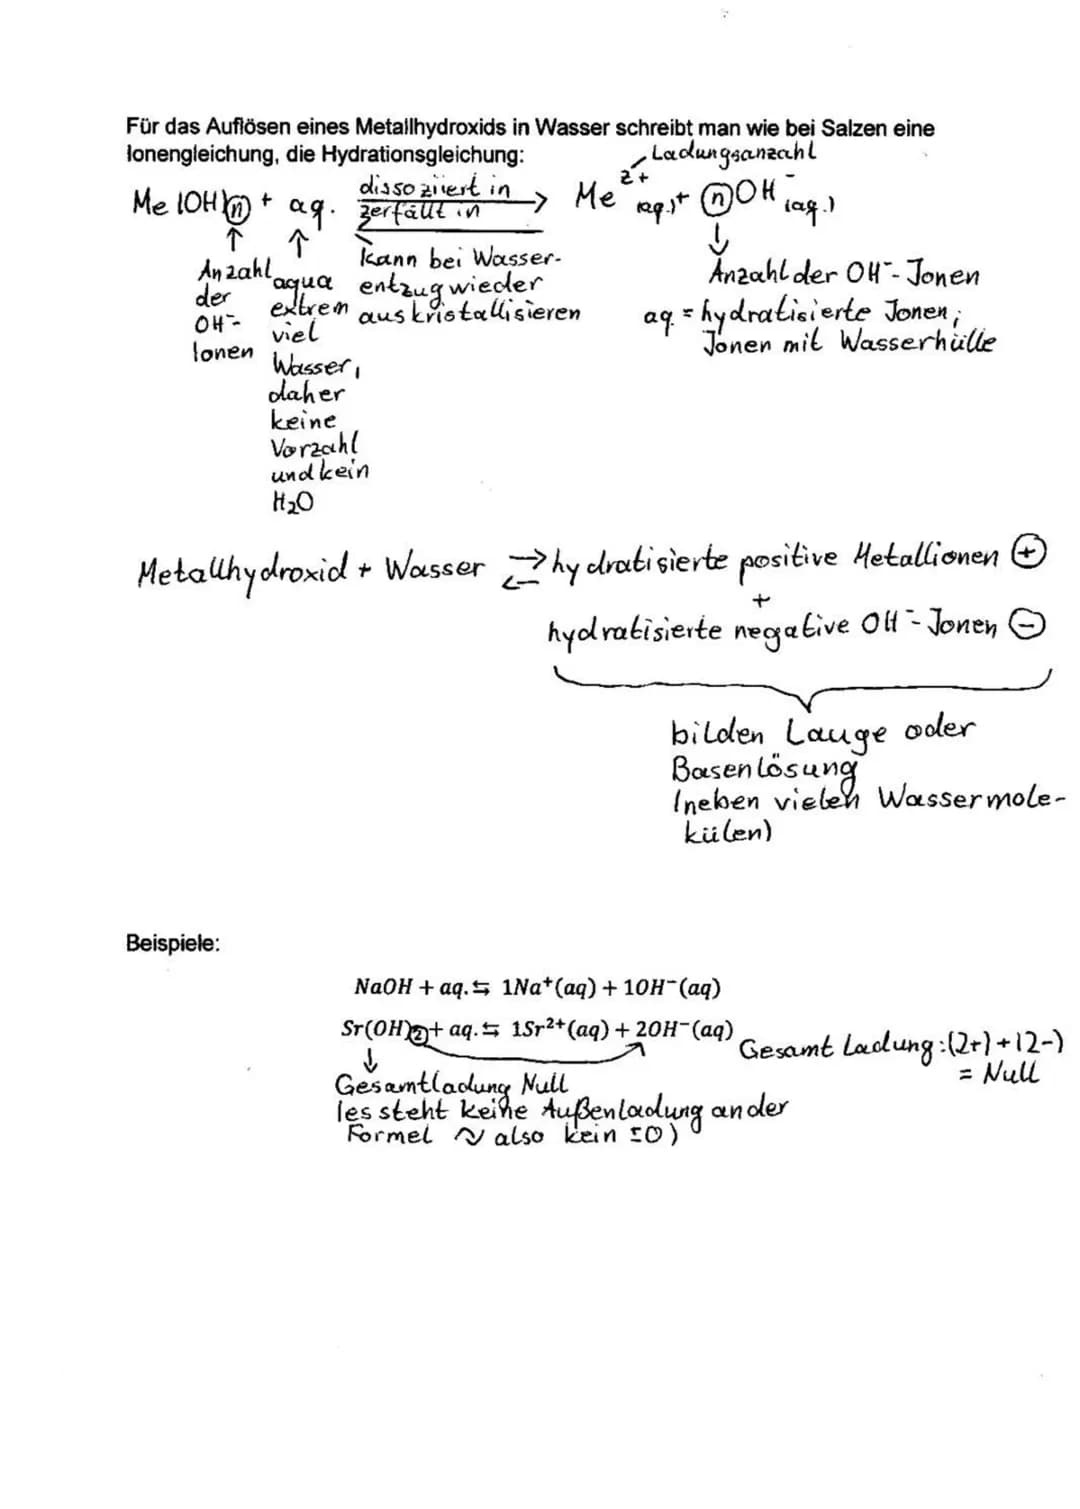 Für das Auflösen eines Metallhydroxids in Wasser schreibt man wie bei Salzen eine
Ionengleichung, die Hydrationsgleichung:
Ladungsanzahl
Me (OH)n + aq. dissoziiert in zerfällt in → Me z+ (aq.) + n OH - (aq.)
↑ ↑ ↓
Anzahl der OH-- Ionen
aqua extrem viel Wasser, daher keine Vorzahl und kein H2O
kann bei Wasser-
entzug wieder
auskristallisieren
Anzahl der OH-- Jonen
aq. = hydratisierte Jonen;
Jonen mit Wasserhülle
Metallhydroxid + Wasser ⇄ hydratisierte positive Metallionen ⊕
+
hydratisierte negative OH-- Jonen ⊖
bilden Lauge oder
Basenlösung
(neben vielen Wassermole-
külen)
Beispiele:
NaOH + aq. ⇆ 1Na+(aq) + 1OH−(aq)
Sr(OH)2 + aq. ⇆ 1Sr2+(aq) + 2OH−(aq)
Gesamt Ladung: (2+) + (2-)
= Null
↓
Gesamtladung Null
(es steht keine Außenladung an der
Formel ~ also kein ±0)